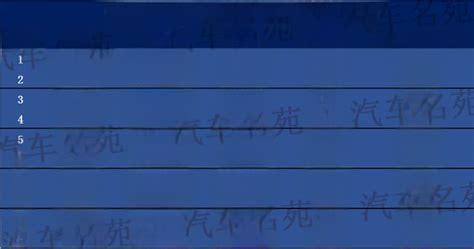 汽车名苑
汽车名苑
汽车名苑
1
2
3
4
5
汽车名苑
汽车名苑
汽车名苑
汽车名苑
汽车名苑
汽车名苑